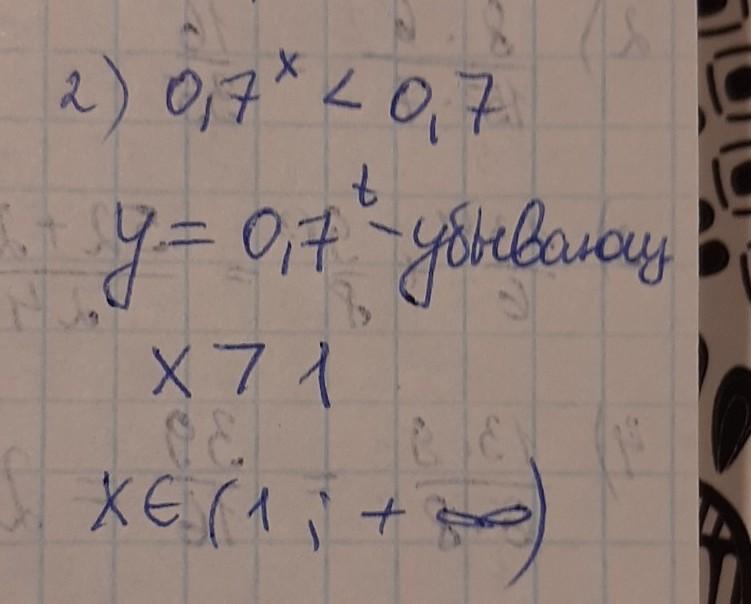 2) 0,7ˣ < 0,7
y = 0,7ᵗ - убывающ
x > 1
x ∈ (1 ; + ∞)